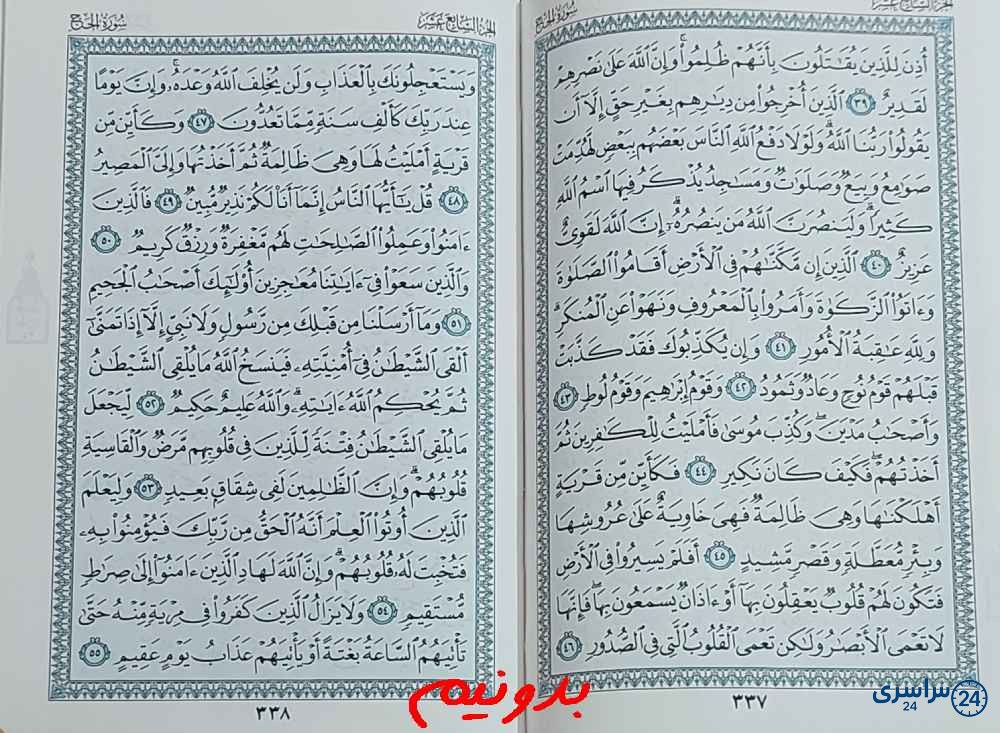 الجزء السابع عشر
سورة الحج
أُذِنَ لِلَّذِينَ يُقَٰتَلُونَ بِأَنَّهُمْ ظُلِمُوا۟ وَإِنَّ ٱللَّهَ عَلَىٰ نَصْرِهِمْ
لَقَدِيرٌ ٣٩ ٱلَّذِينَ أُخْرِجُوا۟ مِن دِيَٰرِهِم بِغَيْرِ حَقٍّ إِلَّآ أَن
يَقُولُوا۟ رَبُّنَا ٱللَّهُ وَلَوْلَا دَفْعُ ٱللَّهِ ٱلنَّاسَ بَعْضَهُم بِبَعْضٍ لَّهُدِّمَتْ
صَوَٰمِعُ وَبِيَعٌ وَصَلَوَٰتٌ وَمَسَٰجِدُ يُذْكَرُ فِيهَا ٱسْمُ ٱللَّهِ
كَثِيرًا وَلَيَنصُرَنَّ ٱللَّهُ مَن يَنصُرُهُۥٓ إِنَّ ٱللَّهَ لَقَوِىٌّ
عَزِيزٌ ٤٠ ٱلَّذِينَ إِن مَّكَّنَّٰهُمْ فِى ٱلْأَرْضِ أَقَامُوا۟ ٱلصَّلَوٰةَ
وَءَاتَوُا۟ ٱلزَّكَوٰةَ وَأَمَرُوا۟ بِٱلْمَعْرُوفِ وَنَهَوْا۟ عَنِ ٱلْمُنكَرِ
وَلِلَّهِ عَٰقِبَةُ ٱلْأُمُورِ ٤١ وَإِن يُكَذِّبُوكَ فَقَدْ كَذَّبَتْ
قَبْلَهُمْ قَوْمُ نُوحٍ وَعَادٌ وَثَمُودُ ٤٢ وَقَوْمُ إِبْرَٰهِيمَ وَقَوْمُ لُوطٍ ٤٣
وَأَصْحَٰبُ مَدْيَنَ وَكُذِّبَ مُوسَىٰ فَأَمْلَيْتُ لِلْكَٰفِرِينَ ثُمَّ
أَخَذْتُهُمْ فَكَيْفَ كَانَ نَكِيرِ ٤٤ فَكَأَيِّن مِّن قَرْيَةٍ
أَهْلَكْنَٰهَا وَهِىَ ظَالِمَةٌ فَهِىَ خَاوِيَةٌ عَلَىٰ عُرُوشِهَا
وَبِئْرٍ مُّعَطَّلَةٍ وَقَصْرٍ مَّشِيدٍ ٤٥ أَفَلَمْ يَسِيرُوا۟ فِى ٱلْأَرْضِ
فَتَكُونَ لَهُمْ قُلُوبٌ يَعْقِلُونَ بِهَآ أَوْ ءَاذَانٌ يَسْمَعُونَ بِهَا فَإِنَّهَا
لَا تَعْمَى ٱلْأَبْصَٰرُ وَلَٰكِن تَعْمَى ٱلْقُلُوبُ ٱلَّتِى فِى ٱلصُّدُورِ ٤٦
٣٣٧
الجزء السابع عشر
سورة الحج
وَيَسْتَعْجِلُونَكَ بِٱلْعَذَابِ وَلَن يُخْلِفَ ٱللَّهُ وَعْدَهُۥ وَإِنَّ يَوْمًا
عِندَ رَبِّكَ كَأَلْفِ سَنَةٍ مِّمَّا تَعُدُّونَ ٤٧ وَكَأَيِّن مِّن
قَرْيَةٍ أَمْلَيْتُ لَهَا وَهِىَ ظَالِمَةٌ ثُمَّ أَخَذْتُهَا وَإِلَىَّ ٱلْمَصِيرُ
٤٨ قُلْ يَٰٓأَيُّهَا ٱلنَّاسُ إِنَّمَآ أَنَا۠ لَكُمْ نَذِيرٌ مُّبِينٌ ٤٩ فَٱلَّذِينَ
ءَامَنُوا۟ وَعَمِلُوا۟ ٱلصَّٰلِحَٰتِ لَهُم مَّغْفِرَةٌ وَرِزْقٌ كَرِيمٌ ٥٠
وَٱلَّذِينَ سَعَوْا۟ فِىٓ ءَايَٰتِنَا مُعَٰجِزِينَ أُو۟لَٰٓئِكَ أَصْحَٰبُ ٱلْجَحِيمِ
٥١ وَمَآ أَرْسَلْنَا مِن قَبْلِكَ مِن رَّسُولٍ وَلَا نَبِىٍّ إِلَّآ إِذَا تَمَنَّىٰٓ
أَلْقَى ٱلشَّيْطَٰنُ فِىٓ أُمْنِيَّتِهِۦ فَيَنسَخُ ٱللَّهُ مَا يُلْقِى ٱلشَّيْطَٰنُ
ثُمَّ يُحْكِمُ ٱللَّهُ ءَايَٰتِهِۦ وَٱللَّهُ عَلِيمٌ حَكِيمٌ ٥٢ لِّيَجْعَلَ
مَا يُلْقِى ٱلشَّيْطَٰنُ فِتْنَةً لِّلَّذِينَ فِى قُلُوبِهِم مَّرَضٌ وَٱلْقَاسِيَةِ
قُلُوبُهُمْ وَإِنَّ ٱلظَّٰلِمِينَ لَفِى شِقَاقٍۭ بَعِيدٍ ٥٣ وَلِيَعْلَمَ
ٱلَّذِينَ أُوتُوا۟ ٱلْعِلْمَ أَنَّهُ ٱلْحَقُّ مِن رَّبِّكَ فَيُؤْمِنُوا۟ بِهِۦ
فَتُخْبِتَ لَهُۥ قُلُوبُهُمْ وَإِنَّ ٱللَّهَ لَهَادِ ٱلَّذِينَ ءَامَنُوٓا۟ إِلَىٰ صِرَٰطٍ
مُّسْتَقِيمٍ ٥٤ وَلَا يَزَالُ ٱلَّذِينَ كَفَرُوا۟ فِى مِرْيَةٍ مِّنْهُ حَتَّىٰ
تَأْتِيَهُمُ ٱلسَّاعَةُ بَغْتَةً أَوْ يَأْتِيَهُمْ عَذَابُ يَوْمٍ عَقِيمٍ ٥٥
٣٣٨
بدونیم
سراسری 24
24